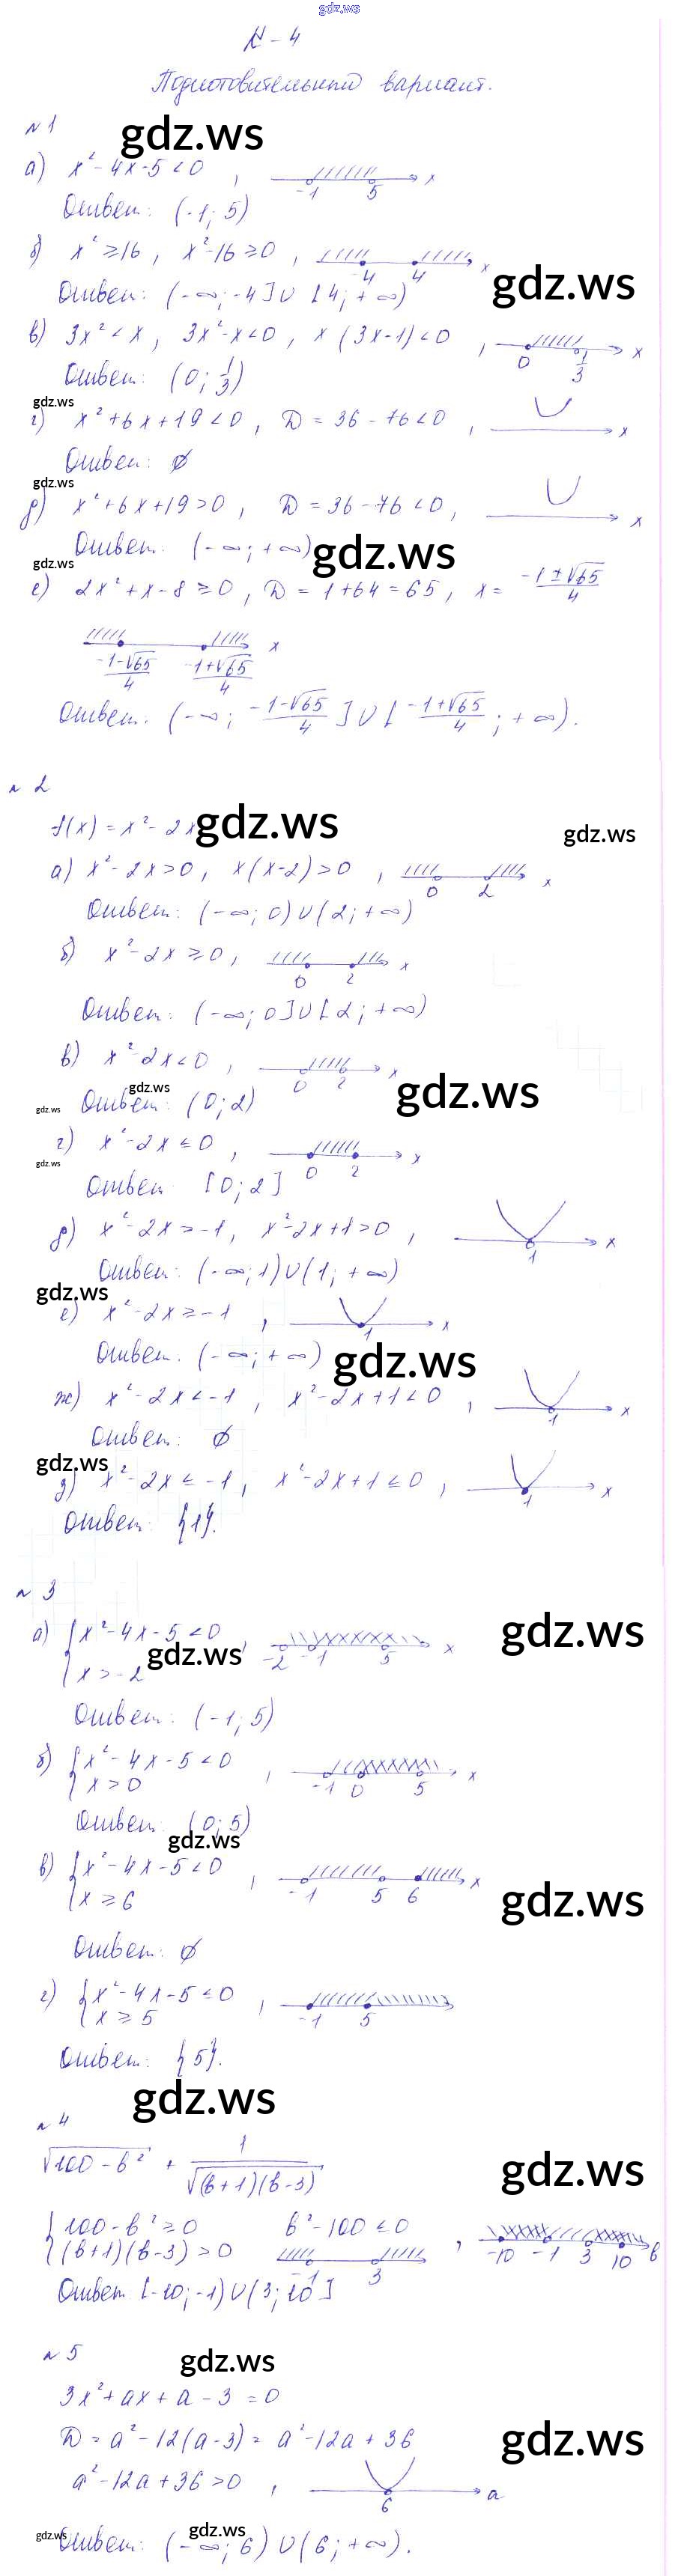 gdz.ws
К-4
Подготовительный вариант.
gdz.ws
№1
а) x²-4x-5<0, -1 5 x
Ответ: (-1; 5)
б) x²≥16, x²-16≥0, -4 4 x
gdz.ws
Ответ: (-∞; -4]∪[4; +∞)
в) 3x²<x, 3x²-x<0, x(3x-1)<0, 0 1/3 x
Ответ: (0; 1/3)
gdz.ws
г) x²+6x+19<0, D=36-76<0, x
Ответ: ∅
gdz.ws
д) x²+6x+19>0, D=36-76<0, x
Ответ: (-∞; +∞)
gdz.ws
gdz.ws
е) 2x²+x-8≥0, D=1+64=65, x=(-1±√65)/4
(-1-√65)/4 (-1+√65)/4 x
Ответ: (-∞; (-1-√65)/4]∪[(-1+√65)/4; +∞).
№2
f(x)=x²-2x
gdz.ws
gdz.ws
а) x²-2x>0, x(x-2)>0, 0 2 x
Ответ: (-∞; 0)∪(2; +∞)
б) x²-2x≥0, 0 2 x
Ответ: (-∞; 0]∪[2; +∞)
в) x²-2x<0, 0 2 x
gdz.ws
gdz.ws
gdz.ws
Ответ: (0; 2)
г) x²-2x≤0, 0 2 x
gdz.ws
Ответ: [0; 2]
д) x²-2x>-1, x²-2x+1>0, 1 x
Ответ: (-∞; 1)∪(1; +∞)
gdz.ws
е) x²-2x≥-1, 1 x
Ответ: (-∞; +∞)
gdz.ws
ж) x²-2x<-1, x²-2x+1<0, 1 x
Ответ: ∅
gdz.ws
з) x²-2x≤-1, x²-2x+1≤0, 1 x
Ответ: {1}.
№3
gdz.ws
а) {x²-4x-5<0, -2 -1 5 x
x>-2
gdz.ws
Ответ: (-1; 5)
б) {x²-4x-5<0, -1 0 5 x
x>0
Ответ: (0; 5)
gdz.ws
в) {x²-4x-5<0, -1 5 6 x
x≥6
gdz.ws
Ответ: ∅
г) {x²-4x-5≤0, -1 5
x≥5
Ответ: {5}.
gdz.ws
№4
√(100-b²) + 1/√((b+1)(b-3))
gdz.ws
{100-b²≥0 b²-100≤0, -10 -1 3 10 b
(b+1)(b-3)>0 -1 3
Ответ [-10; -1)∪(3; 10]
№5
gdz.ws
3x²+ax+a-3=0
D=a²-12(a-3)=a²-12a+36
gdz.ws
a²-12a+36>0, 6 a
gdz.ws
gdz.ws
Ответ: (-∞; 6)∪(6; +∞).